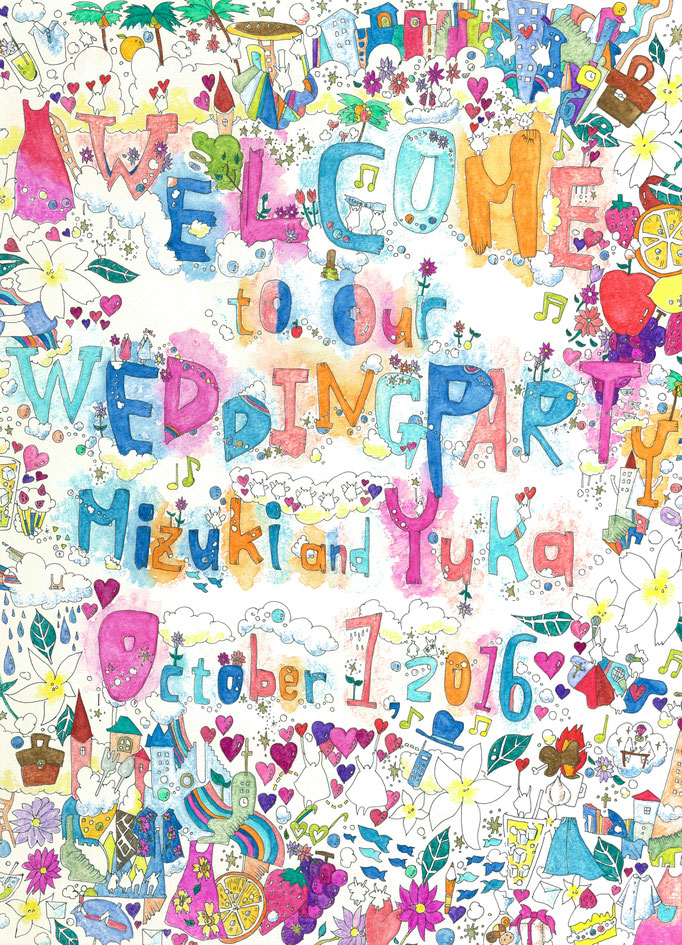 WELCOME
to our
WEDDING PARTY
Mizuki and Yuka
October 1, 2016